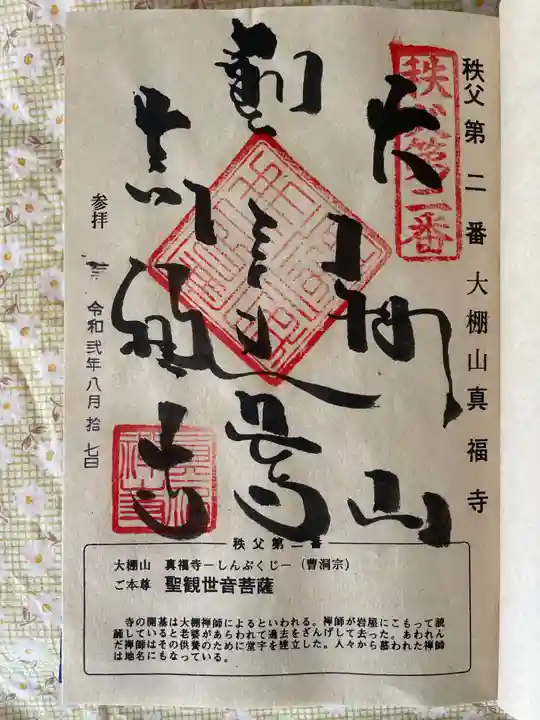 秩父第二番 大棚山真福寺
秩父第二番
大棚山
真福寺
参拝
令和弐年八月拾七日
秩父第二番
大棚山 真福寺－しんぷくじ－(曹洞宗)
ご本尊 聖観世音菩薩
寺の開基は大棚禅師によるといわれる。禅師が岩屋にこもって読
誦していると老婆があらわれて過去をざんげして去った。あわれん
だ禅師はその供養のために堂宇を建立した。人々から慕われた禅師
は地名にもなっている。